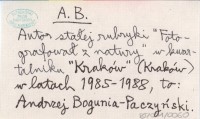 A.B.
Autor stałej rubryki "Foto-
grafował z natury" w kwar-
talniku "Kraków" (Kraków)
w latach 1985-1988, to:
Andrzej Bogunia-Paczyński.